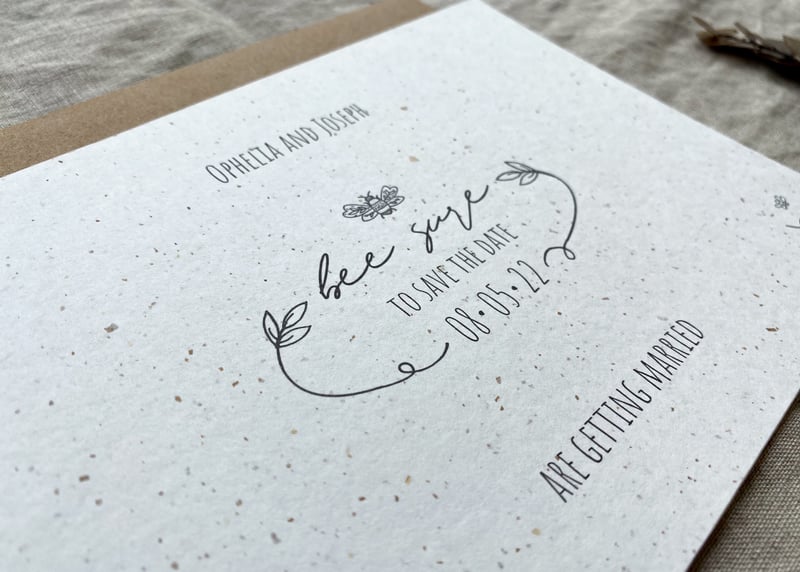 Ophelia and Joseph
bee sure
TO SAVE THE DATE
08•05•22
ARE GETTING MARRIED